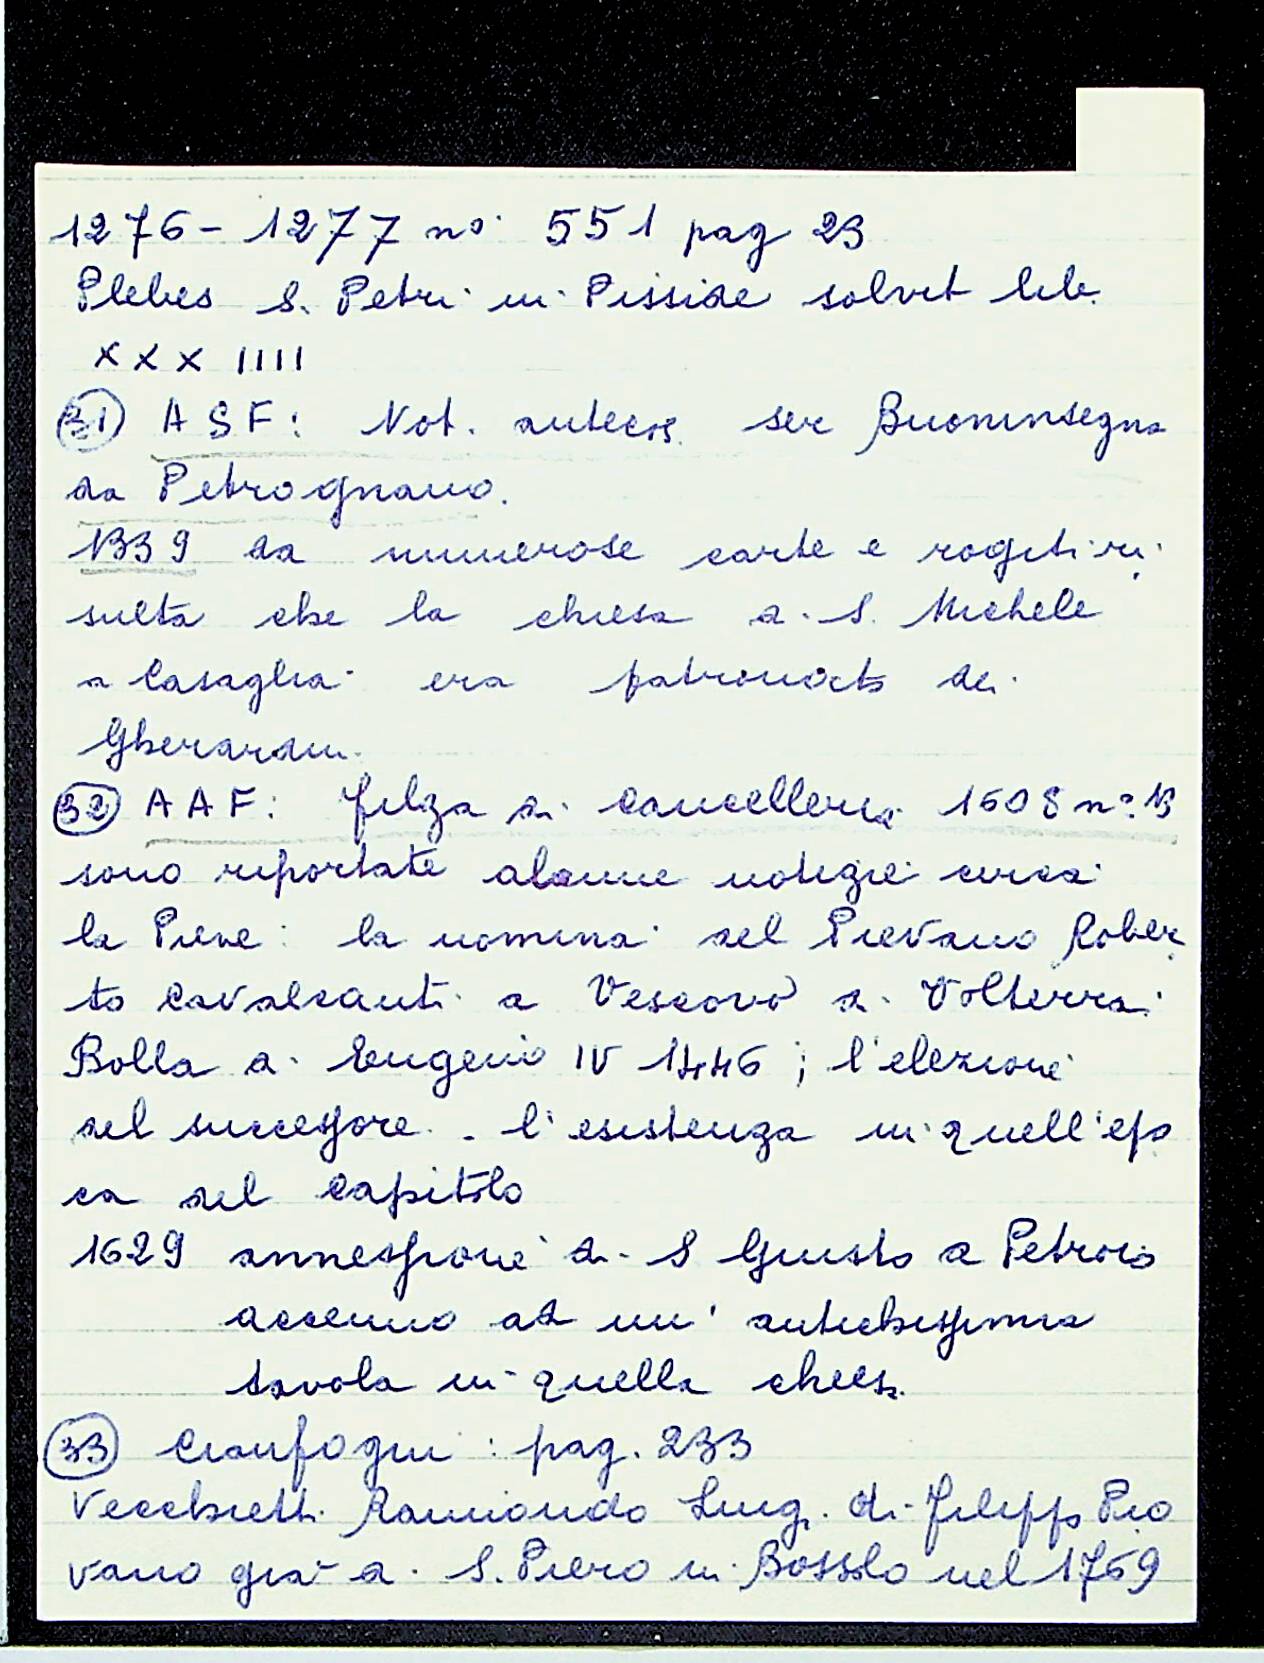 1276 - 1277 nº 551 pag 23
Plebes S. Petri in Pisside solvit lib.
XXX IIII
(31) ASF: Not. antecos. ser Buoninsegna
da Petrognano.
1339 da numerose carte e rogiti ri
sulta che la chiesa di S. Michele
a Casaglia era patronato dei
Gherardini
(32) AAF: filza di cancelleria 1608 nº 13
sono riportate alcune notizie circa
la Pieve: la nomina del Pievano Rober
to Cavalcanti a Vescovo di Volterra:
Bolla di Eugenio IV 1446; l'elezione
del successore. - l'esistenza in quell'epo
ca del Capitolo
1629 annessione di S Giusto a Petroio
accenno ad un' antichissima
tavola in quella chiesa.
(33) Cianfogni: pag. 233
Vecchietti Raimondo Luig. di Filippo Pio
vano già di S. Piero in Bossolo nel 1769